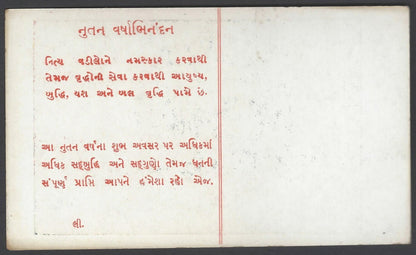 નુતન વર્ષાભિનંદન
નિત્ય વડીલોને નમસ્કાર કરવાથી
તેમજ વૃદ્ધોની સેવા કરવાથી આયુષ્ય,
બુદ્ધિ, યશ અને બલ વૃદ્ધિ પામે છે.
આ નુતન વર્ષના શુભ અવસર પર અધિકમાં
અધિક સદ્બુદ્ધિ અને સદ્ગુણો તેમજ ધનની
સંપૂર્ણ પ્રાપ્તિ આપને હંમેશા રહો એજ.
લી.